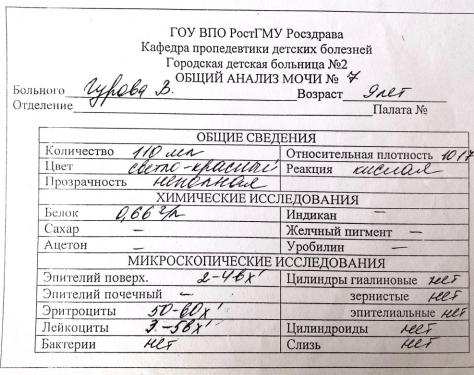 ГОУ ВПО РостГМУ Росздрава
Кафедра пропедевтики детских болезней
Городская детская больница №2
ОБЩИЙ АНАЛИЗ МОЧИ № 7
Больного Гурова В. Возраст 9 лет
Отделение Палата №
ОБЩИЕ СВЕДЕНИЯ
Количество 110 мл Относительная плотность 1017
Цвет светло-красный Реакция кислая
Прозрачность неполная
ХИМИЧЕСКИЕ ИССЛЕДОВАНИЯ
Белок 0,66 г/л Индикан —
Сахар — Желчный пигмент —
Ацетон — Уробилин —
МИКРОСКОПИЧЕСКИЕ ИССЛЕДОВАНИЯ
Эпителий поверх. 2-4 в х' Цилиндры гиалиновые нет
Эпителий почечный — зернистые нет
Эритроциты 50-60 х' эпителиальные нет
Лейкоциты 3-5 в х' Цилиндроиды нет
Бактерии нет Слизь нет